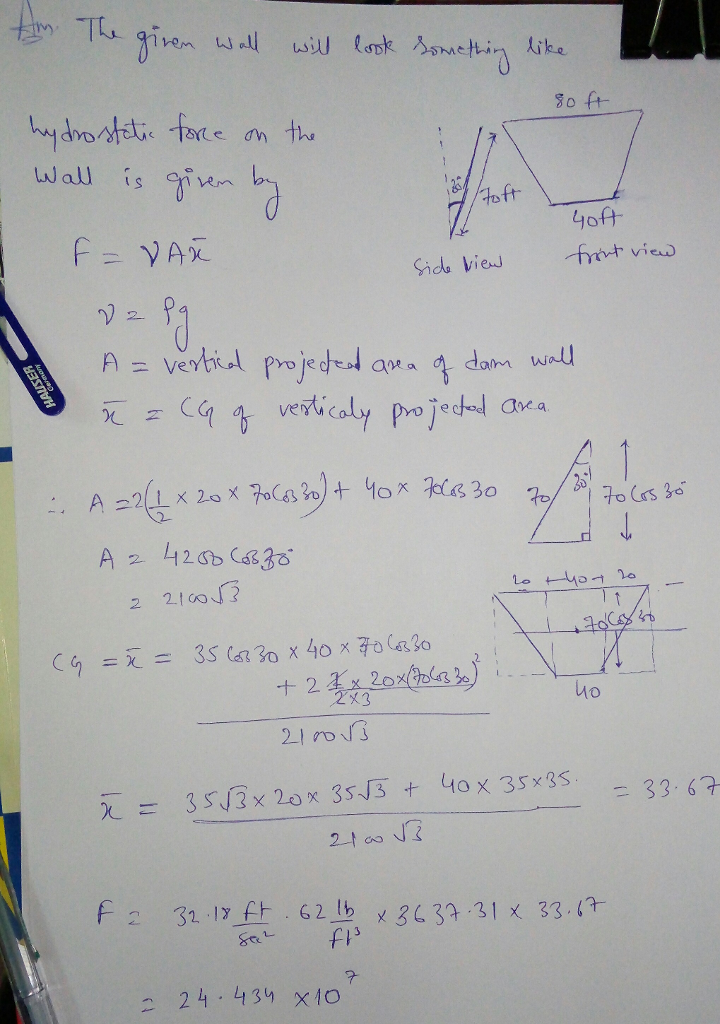 Ans. The given wall will look something like
80 ft
hydrostatic force on the
wall is given by
30°
70ft
40ft
Side View
front view
F = γAx̄
γ = ρg
A = vertical projected area of dam wall
x̄ = CG of verticaly projected area.
HAUSER
Germany
∴ A = 2(1/2 × 20 × 70Cos30) + 40 × 70Cos30
70
30°
70Cos30°
A = 4200 Cos30°
= 2100√3
20 + 40 + 20
70Cos30
40
CG = x̄ = 35 Cos30 × 40 × 70Cos30
+ 2 1 × 20×(70Cos30)²
2×3
2100√3
x̄ = 35√3 × 20 × 35√3 + 40 × 35×35. = 33.67
2100 √3
F = 32.18 ft/sec² . 62 lb/ft³ × 3637.31 × 33.67
= 24.434 × 10⁷